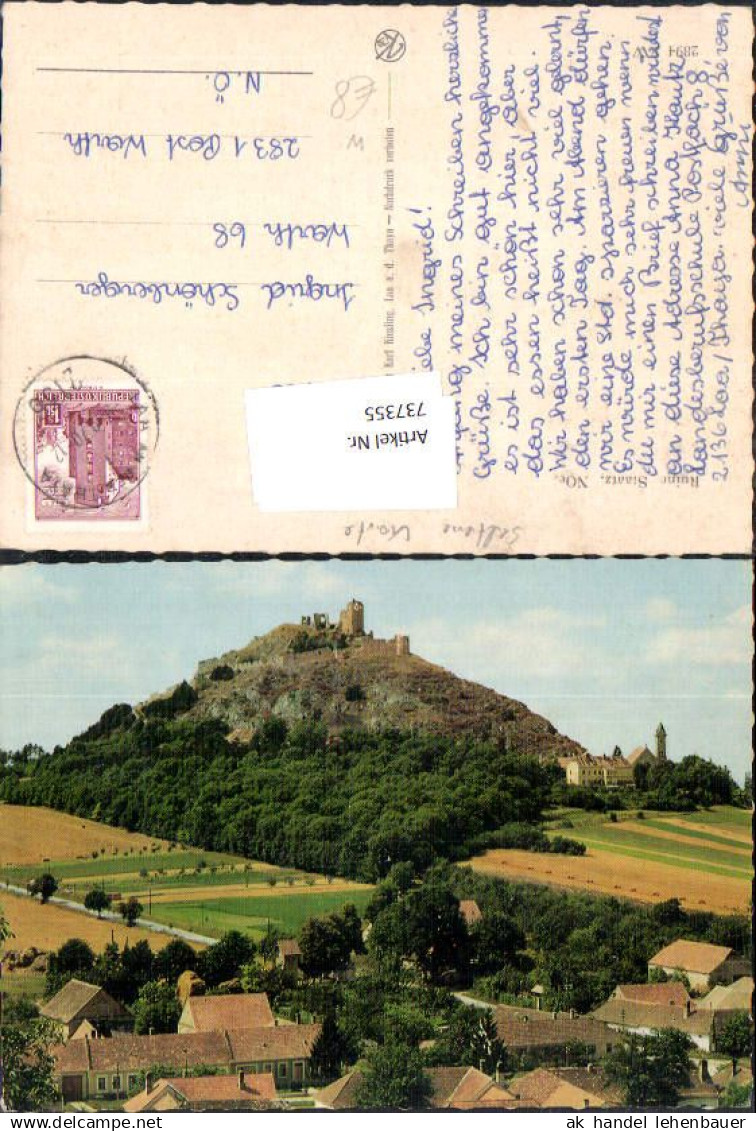 2894 W
Liebe Ingrid!
Anfang meines Schreiben herzliche
Grüße. Ich bin gut angekommen
es ist sehr schön hier, aber
das essen heißt nicht viel.
Wir haben schon sehr viel gelernt,
den ersten Tag. Am Abend dürfen
wir eine Std. spazieren gehen.
Es würde mich sehr freuen wenn
du mir einen Brief schreiben würdest
an diese Adresse Anna Hautz
Landesberufsschule Postfach 8
2136 Laa/Thaya. viele Grüße von
Anni
Ruine Staatz, NÖe.
Karl Kossling, Laa a. d. Thaya — Nachdruck verboten
Ingrid Schönberger
Warth 68
2831 Post Warth
N.Ö.
€8
W
REPUBLIK ÖSTERREICH
1.50
Seltene Karte
Artikel Nr.
737355
ak handel lehenbauer